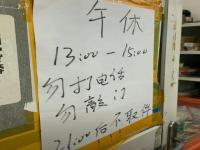 午休
13:00－15:00
勿打电话
勿敲门
21:00后不取件